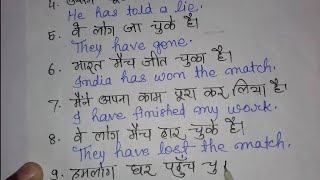 He has told a lie.
5. वे लोग जा चुके है।
They have gone.
6. भारत मैच जीत चुका है।
India has won the match.
7. मैंने अपना काम पूरा कर लिया है।
I have finished my work.
8. वे लोग मैच हार चुके है।
They have lost the match.
9. हमलोग घर पहुँच चु